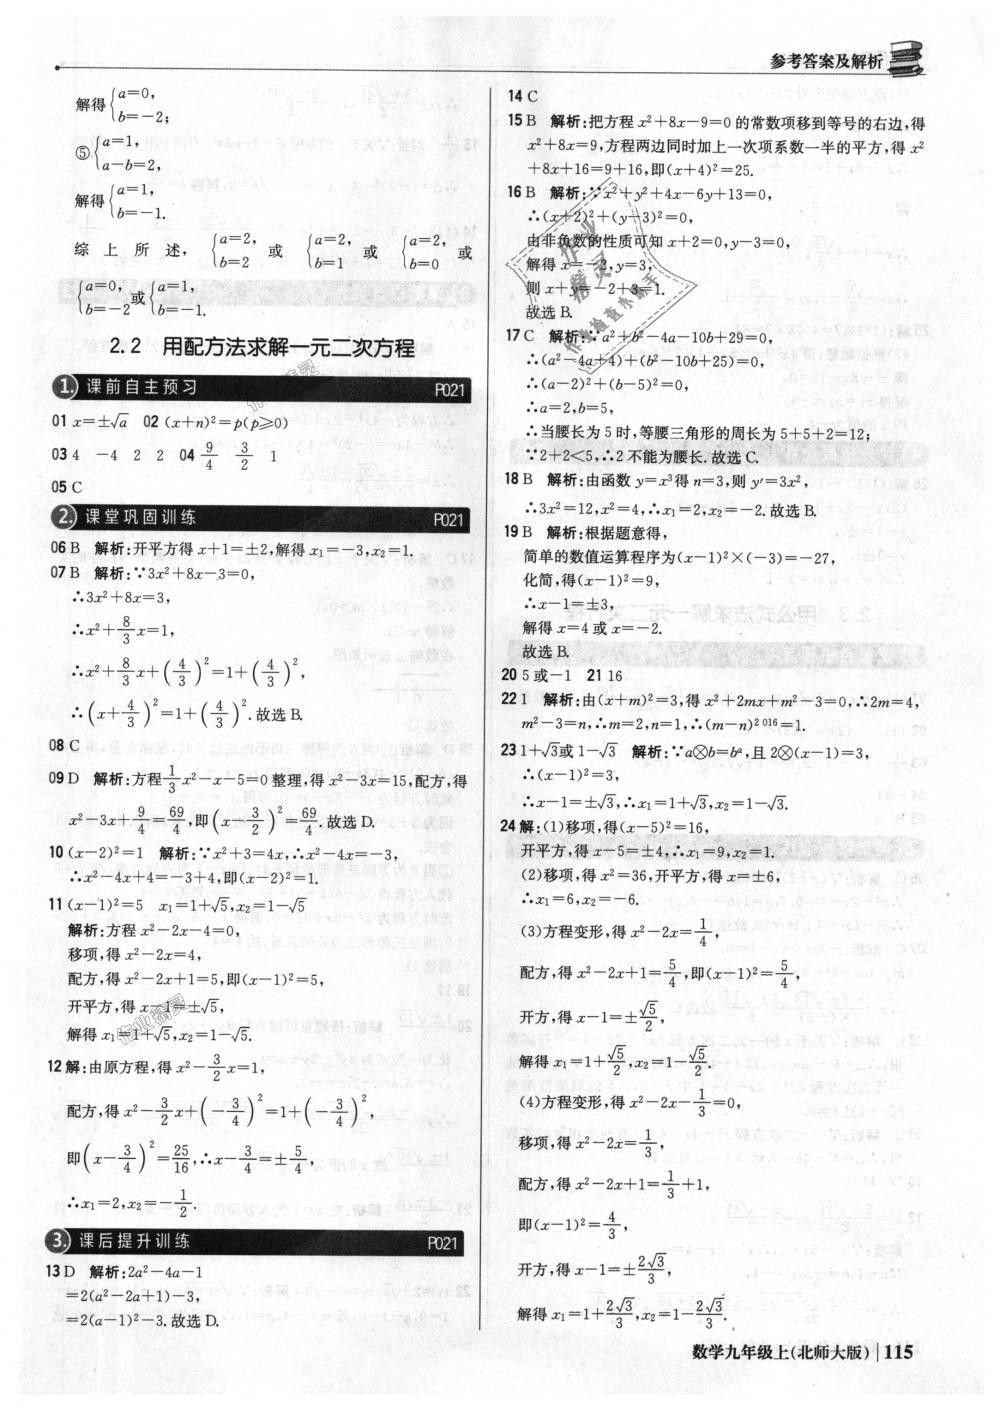 参考答案及解析
解得{a=0, b=-2;
⑤{a=1, a-b=2,
解得{a=1, b=-1.
综上所述,{a=2, b=2 或{a=2, b=1 或{a=2, b=0 或
{a=0, b=-2 或{a=1, b=-1.
2.2 用配方法求解一元二次方程
1. 课前自主预习 P021
01 x=±√a 02 (x+n)²=p(p≥0)
03 4 -4 2 2 04 9/4 3/2 1
05 C
2. 课堂巩固训练 P021
06 B 解析:开平方得 x+1=±2,解得 x₁=-3,x₂=1.
07 B 解析:∵3x²+8x-3=0,
∴3x²+8x=3,
∴x²+8/3x=1,
∴x²+8/3x+(4/3)²=1+(4/3)²,
∴(x+4/3)²=1+(4/3)².故选B.
08 C
09 D 解析:方程1/3x²-x-5=0整理,得 x²-3x=15,配方,得
x²-3x+9/4=69/4,即(x-3/2)²=69/4.故选D.
10 (x-2)²=1 解析:∵x²+3=4x,∴x²-4x=-3,
∴x²-4x+4=-3+4,即(x-2)²=1.
11 (x-1)²=5 x₁=1+√5,x₂=1-√5
解析:方程 x²-2x-4=0,
移项,得 x²-2x=4,
配方,得 x²-2x+1=5,即(x-1)²=5,
开平方,得 x-1=±√5,
解得 x₁=1+√5,x₂=1-√5.
12 解:由原方程,得 x²-3/2x=1,
配方,得 x²-3/2x+(-3/4)²=1+(-3/4)²,
即(x-3/4)²=25/16,∴x-3/4=±5/4,
∴x₁=2,x₂=-1/2.
3. 课后提升训练 P021
13 D 解析:2a²-4a-1
=2(a²-2a+1)-3,
=2(a-1)²-3.故选D.
14 C
15 B 解析:把方程 x²+8x-9=0的常数项移到等号的右边,得
x²+8x=9,方程两边同时加上一次项系数一半的平方,得 x²
+8x+16=9+16,即(x+4)²=25.
16 B 解析:∵x²+y²+4x-6y+13=0,
∴(x+2)²+(y-3)²=0,
由非负数的性质可知 x+2=0,y-3=0,
解得 x=-2,y=3,
则 x+y=-2+3=1.
故选B.
17 C 解析:∵a²+b²-4a-10b+29=0,
∴(a²-4a+4)+(b²-10b+25)=0,
∴(a-2)²+(b-5)²=0,
∴a=2,b=5,
∴当腰长为5时,等腰三角形的周长为5+5+2=12;
∵2+2<5,∴2不能为腰长.故选C.
18 B 解析:由函数 y=x³得 n=3,则 y′=3x²,
∴3x²=12,x²=4,∴x₁=2,x₂=-2.故选B.
19 B 解析:根据题意得,
简单的数值运算程序为(x-1)²×(-3)=-27,
化简,得(x-1)²=9,
∴x-1=±3,
解得 x=4或 x=-2.
故选B.
20 5或-1 21 16
22 1 解析:由(x+m)²=3,得 x²+2mx+m²-3=0,∴2m=4,
m²-3=n,∴m=2,n=1,∴(m-n)²⁰¹⁶=1.
23 1+√3或1-√3 解析:∵a⊗b=bᵃ,且2⊗(x-1)=3,
∴(x-1)²=3,
∴x-1=±√3,∴x₁=1+√3,x₂=1-√3.
24 解:(1)移项,得(x-5)²=16,
开平方,得 x-5=±4,∴x₁=9,x₂=1.
(2)移项,得 x²=36,开平方,得 x=±6,
∴x₁=6,x₂=-6.
(3)方程变形,得 x²-2x=1/4,
配方,得 x²-2x+1=5/4,即(x-1)²=5/4,
开方,得 x-1=±√5/2,
解得 x₁=1+√5/2,x₂=1-√5/2.
(4)方程变形,得 x²-2x-1/3=0,
移项,得 x²-2x=1/3,
配方,得 x²-2x+1=1/3+1,
即(x-1)²=4/3,
开方,得 x-1=±2√3/3,
解得 x₁=1+2√3/3,x₂=1-2√3/3.
数学九年级上(北师大版) | 115